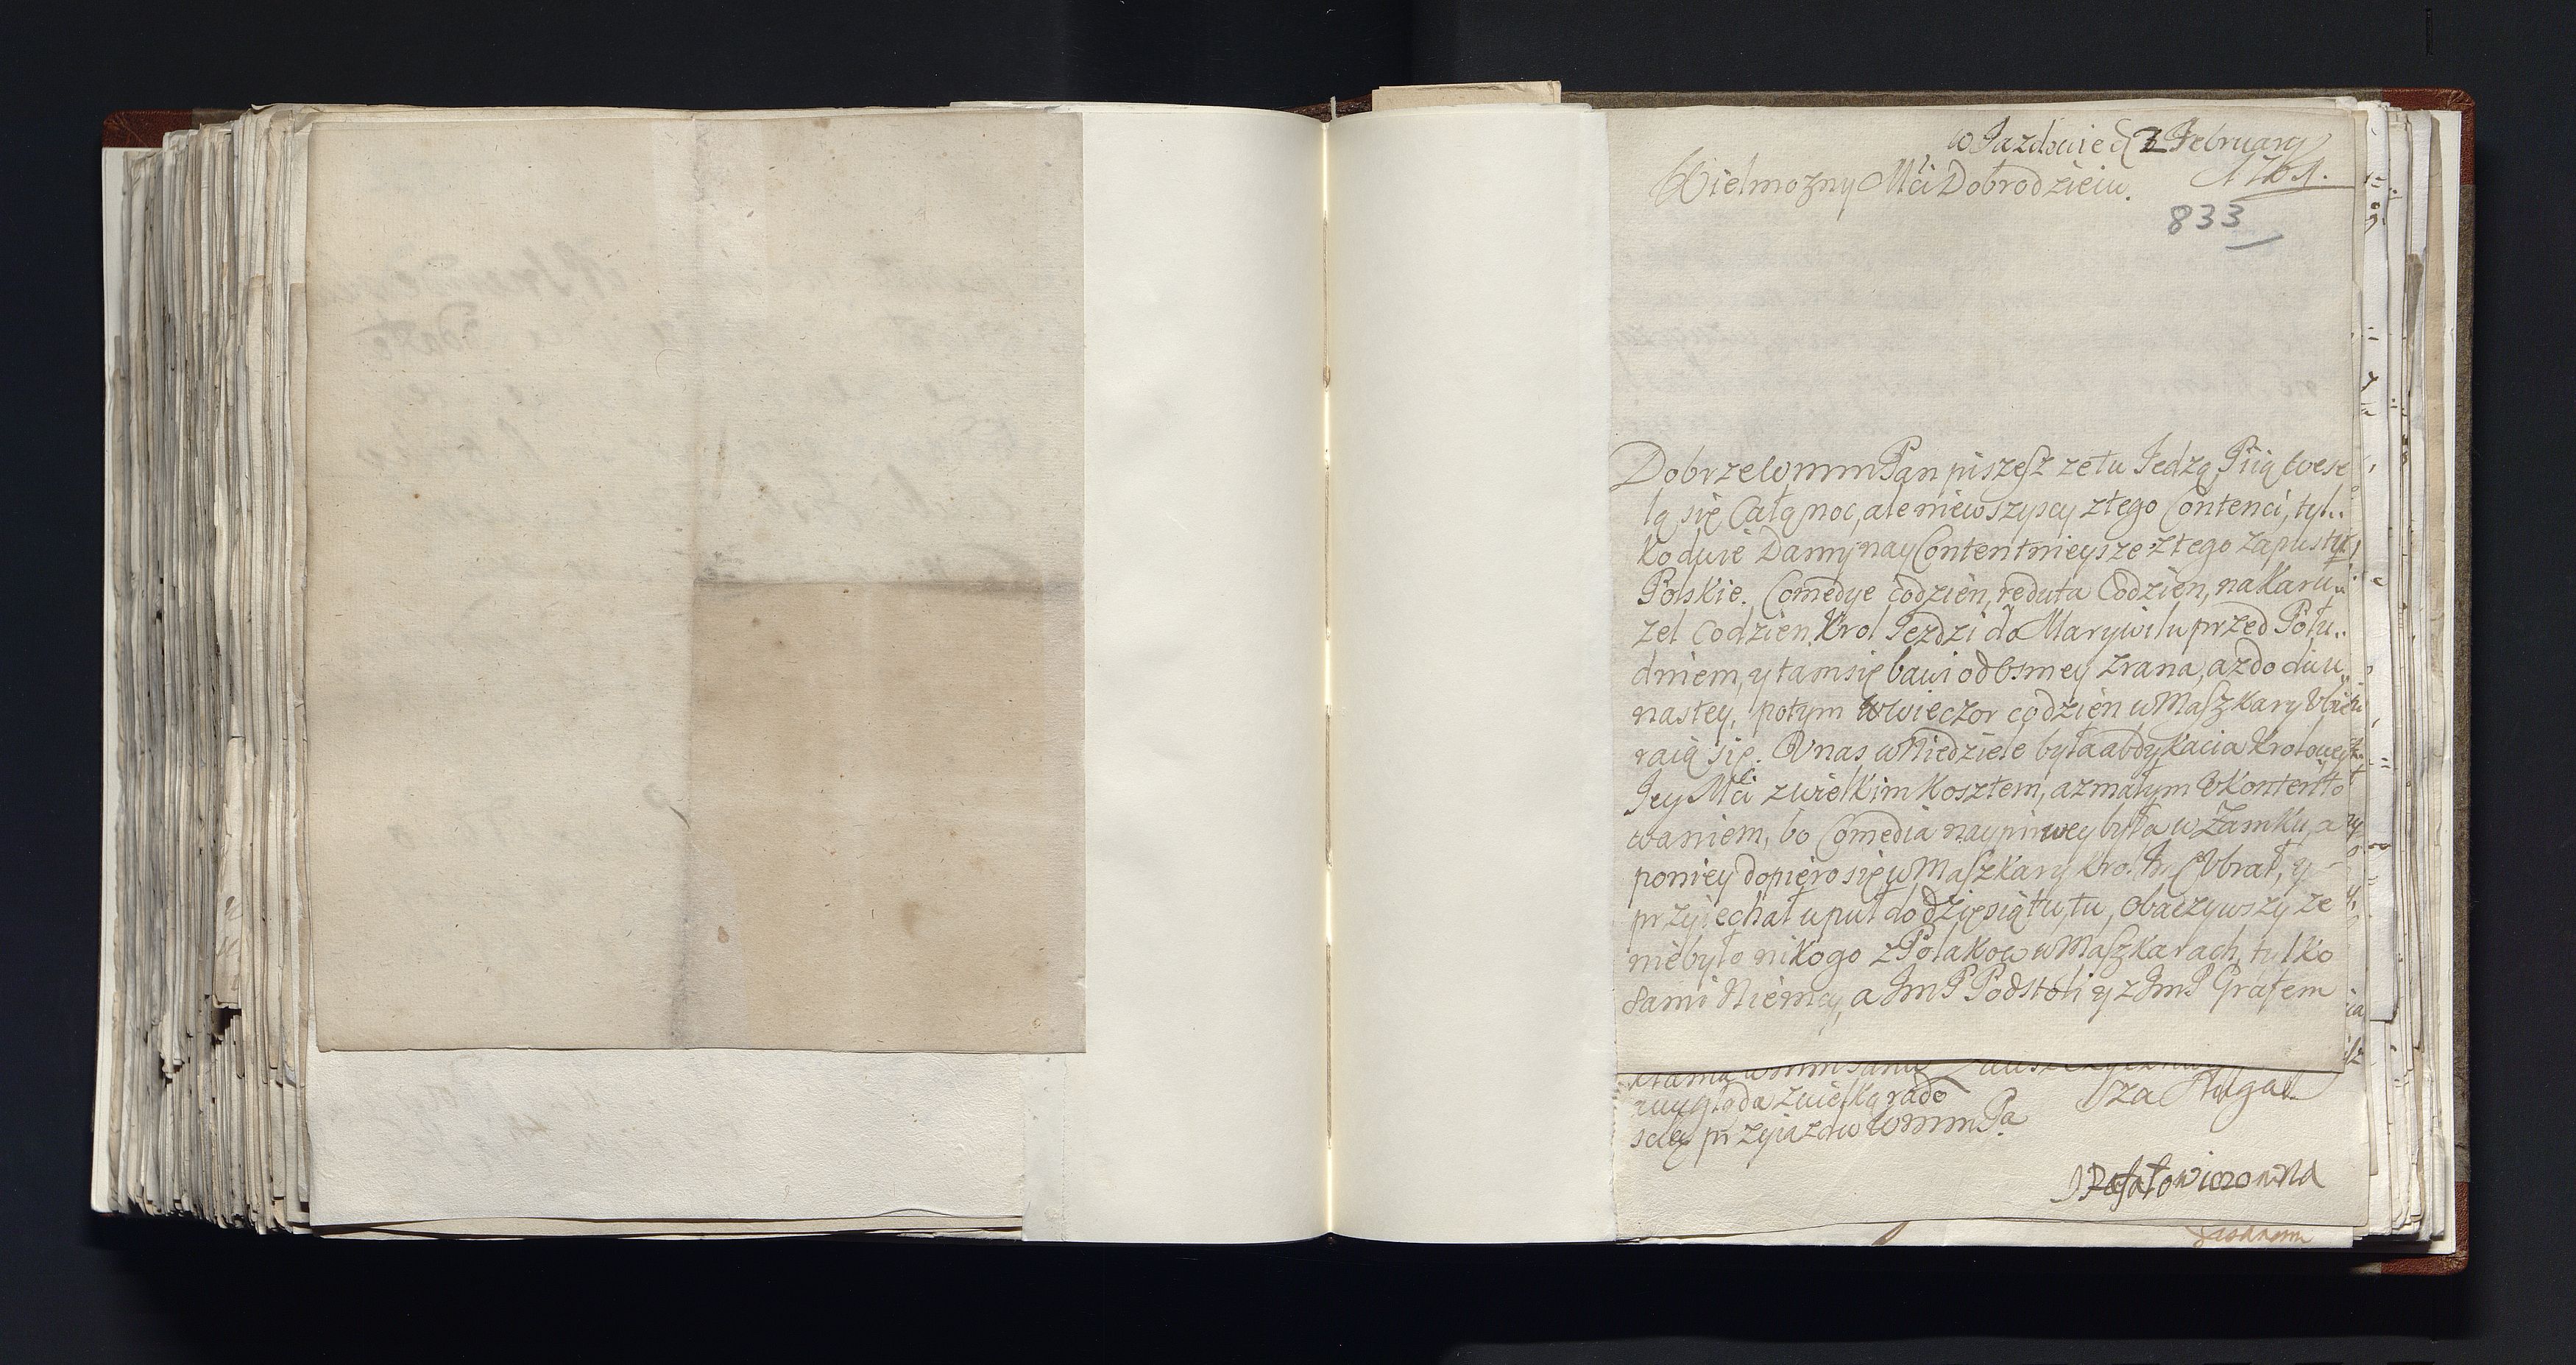 w Jazdowie d 3 February
1761.
Wielmozny Mci Dobrodzieiu.
833
Dobrze WmmPan piszesz ze tu Jedzą, Piią wese
lą się Całą noc, ale niewszyscy ztego Contenci, tyl..
ko dwie Damy nayContentnieysze ztego zapusty
Polskie. Comedye codzien, reduta Codzien, na Karu..
zel Codzien Krol Jezdzi do Marywilu przed Połu..
dniem, y tam się bawi od osmey zrana, az do dwu
nastey, potym wwieczor codzien w Maszkary Vbie
raią się. Vnas w Niedziele była abdykacia Krolowey
Jey Mci zwielkim Kosztem, a zmałym Vkontento
waniem, bo Comedia naypirwey była w Zamku, a
poniey dopiero się w Maszkary Krol Vbrał, y
przyiechał wpuł do dziesiątu, tu, obaczywszy ze
niebyło nikogo z Polakow w Maszkarach, tylko
sami Niemcy, a Jm P Podstoli y z Jm P Grafem
wygląda zwielką rado sza Sługa
scią przyiazdu Wmm Pa
J Rafałowiczowna